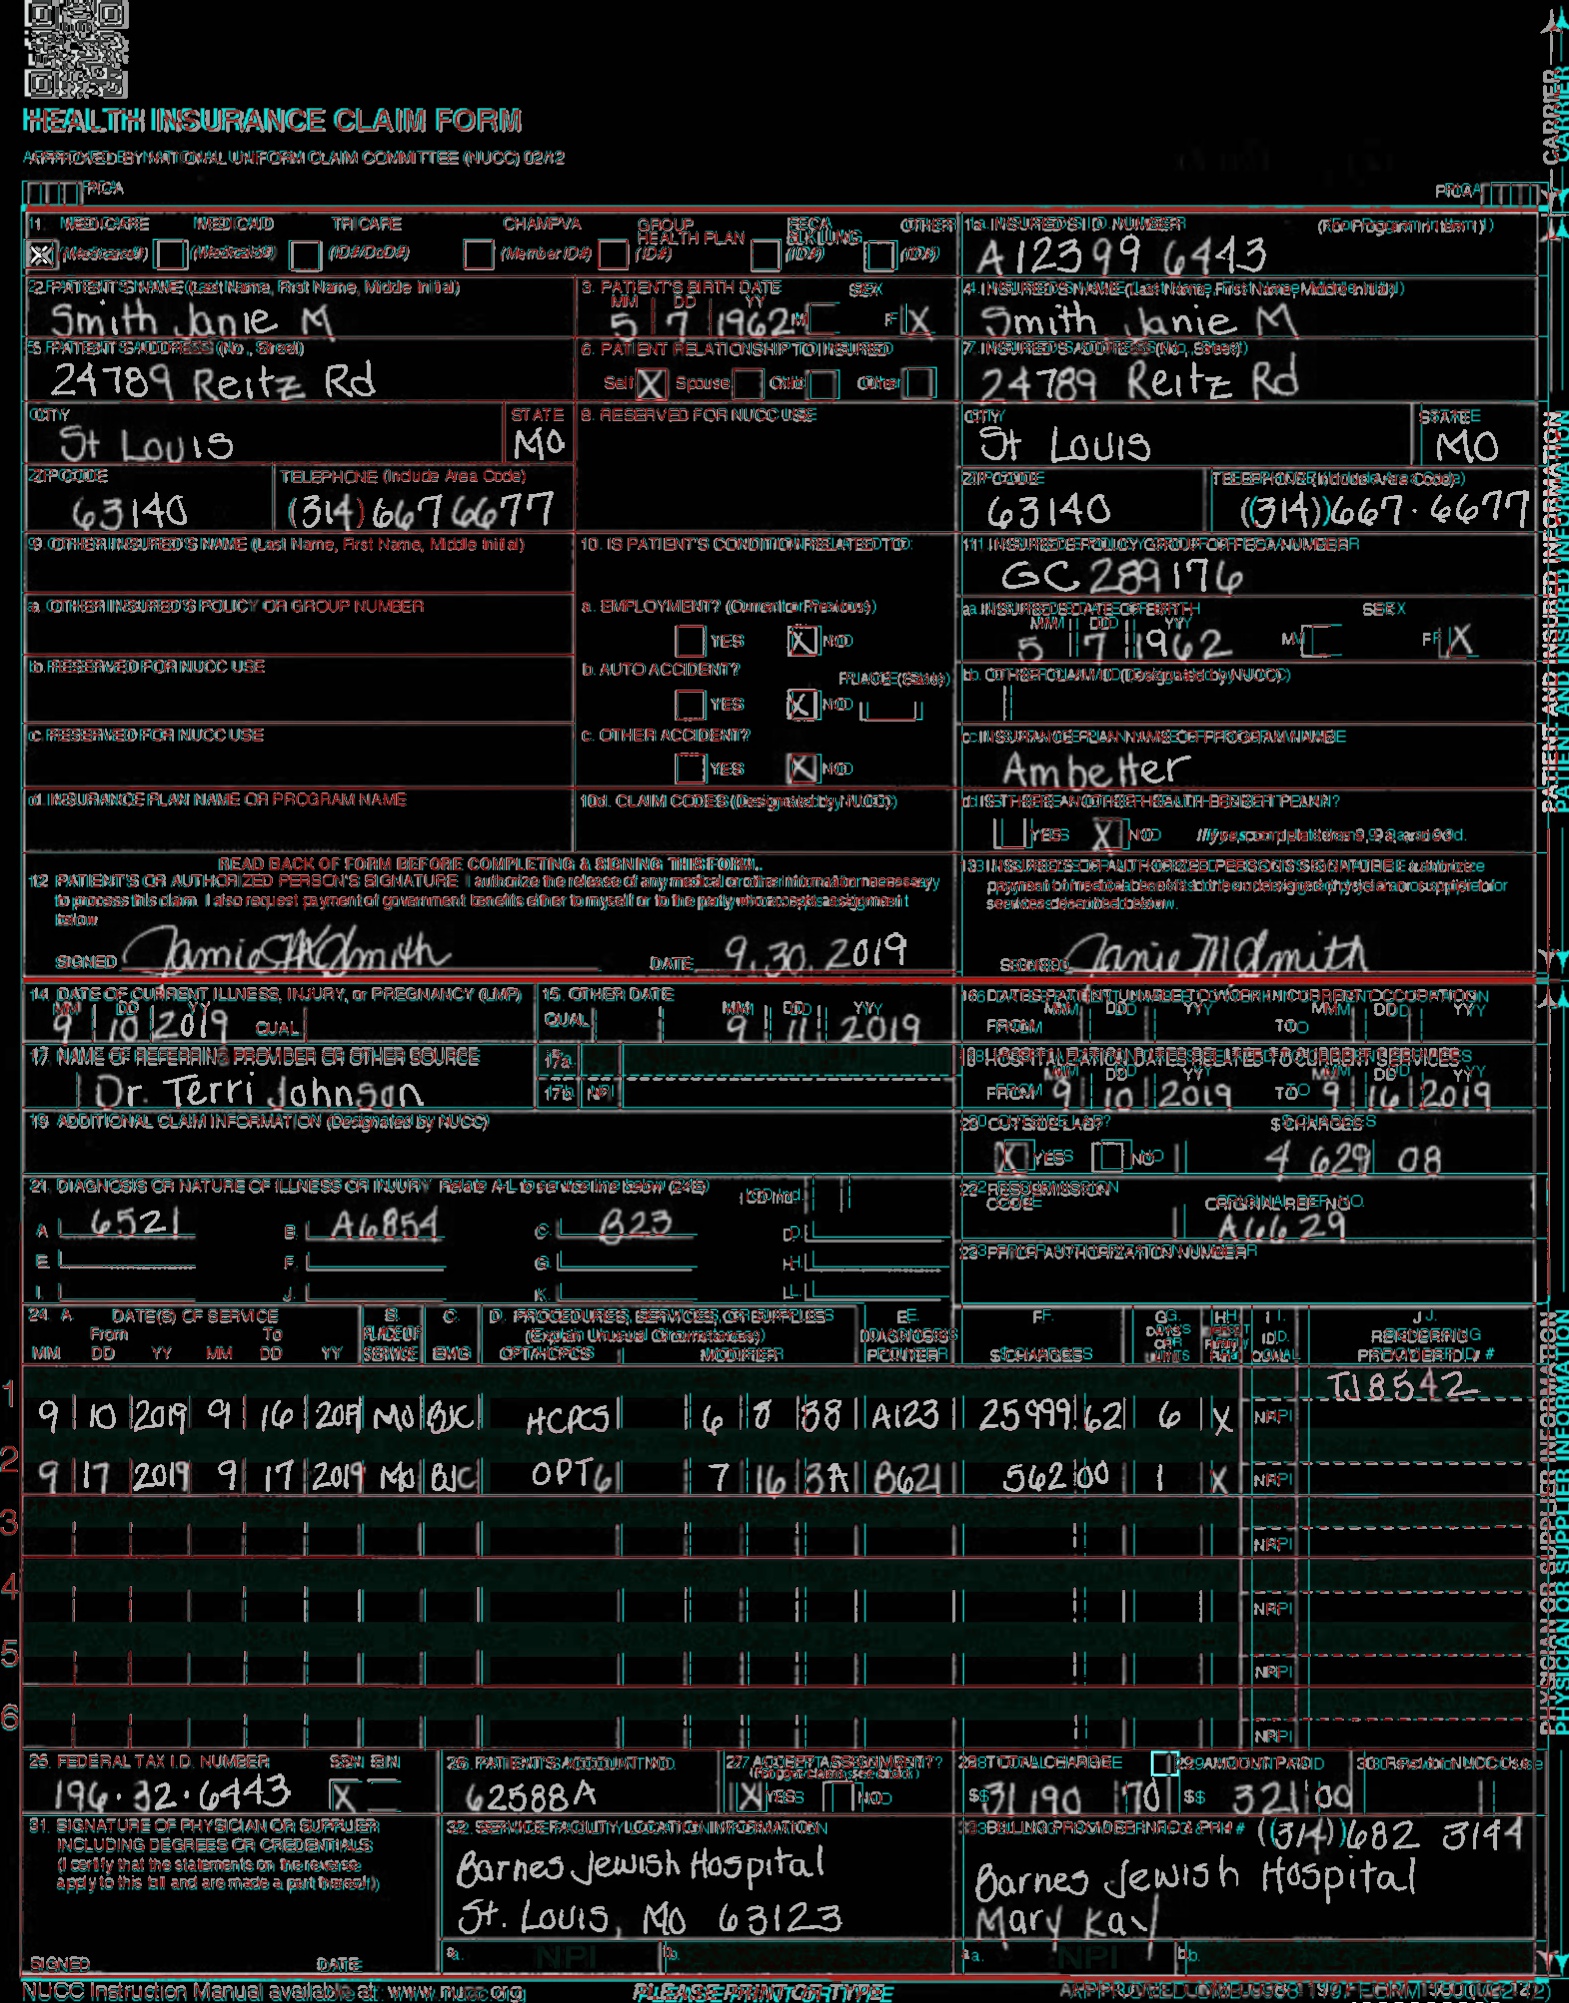 HEALTH INSURANCE CLAIM FORM
APPROVED BY NATIONAL UNIFORM CLAIM COMMITTEE (NUCC) 02/12
PICA PICA
CARRIER
1. MEDICARE MEDICAID TRICARE CHAMPVA GROUP HEALTH PLAN FECA BLK LUNG OTHER
(Medicare#) (Medicaid#) (ID#/DoD#) (Member ID#) (ID#) (ID#) (ID#)
1a. INSURED'S I.D. NUMBER (For Program in Item 1)
A12399 6443
2. PATIENT'S NAME (Last Name, First Name, Middle Initial)
Smith Janie M
3. PATIENT'S BIRTH DATE SEX
MM DD YY
5 7 1962 M F X
4. INSURED'S NAME (Last Name, First Name, Middle Initial)
Smith Janie M
5. PATIENT'S ADDRESS (No., Street)
24789 Reitz Rd
6. PATIENT RELATIONSHIP TO INSURED
Self X Spouse Child Other
7. INSURED'S ADDRESS (No., Street)
24789 Reitz Rd
CITY STATE
St Louis MO
8. RESERVED FOR NUCC USE
CITY STATE
St Louis MO
ZIP CODE TELEPHONE (Include Area Code)
63140 (314) 667 6677
ZIP CODE TELEPHONE (Include Area Code)
63140 (314) 667.6677
9. OTHER INSURED'S NAME (Last Name, First Name, Middle Initial)
10. IS PATIENT'S CONDITION RELATED TO:
11. INSURED'S POLICY GROUP OR FECA NUMBER
GC 289176
a. OTHER INSURED'S POLICY OR GROUP NUMBER
a. EMPLOYMENT? (Current or Previous)
YES X NO
a. INSURED'S DATE OF BIRTH SEX
MM DD YY
5 7 1962 M F X
b. RESERVED FOR NUCC USE
b. AUTO ACCIDENT? PLACE (State)
YES X NO
b. OTHER CLAIM ID (Designated by NUCC)
c. RESERVED FOR NUCC USE
c. OTHER ACCIDENT?
YES X NO
c. INSURANCE PLAN NAME OR PROGRAM NAME
Ambetter
d. INSURANCE PLAN NAME OR PROGRAM NAME
10d. CLAIM CODES (Designated by NUCC)
d. IS THERE ANOTHER HEALTH BENEFIT PLAN?
YES X NO If yes, complete items 9, 9a, and 9d.
PATIENT AND INSURED INFORMATION
READ BACK OF FORM BEFORE COMPLETING & SIGNING THIS FORM.
12. PATIENT'S OR AUTHORIZED PERSON'S SIGNATURE I authorize the release of any medical or other information necessary
to process this claim. I also request payment of government benefits either to myself or to the party who accepts assignment
below.
SIGNED Jamie M Smith DATE 9.30.2019
13. INSURED'S OR AUTHORIZED PERSON'S SIGNATURE I authorize
payment of medical benefits to the undersigned physician or supplier for
services described below.
SIGNED Janie M Smith
14. DATE OF CURRENT ILLNESS, INJURY, or PREGNANCY (LMP)
MM DD YY
9 10 2019 QUAL
15. OTHER DATE
QUAL MM DD YY
9 11 2019
16. DATES PATIENT UNABLE TO WORK IN CURRENT OCCUPATION
MM DD YY MM DD YY
FROM TO
17. NAME OF REFERRING PROVIDER OR OTHER SOURCE
Dr. Terri Johnson
17a.
17b. NPI
18. HOSPITALIZATION DATES RELATED TO CURRENT SERVICES
MM DD YY MM DD YY
FROM 9 10 2019 TO 9 16 2019
19. ADDITIONAL CLAIM INFORMATION (Designated by NUCC)
20. OUTSIDE LAB? $ CHARGES
X YES NO 4 629 08
21. DIAGNOSIS OR NATURE OF ILLNESS OR INJURY Relate A-L to service line below (24E) ICD Ind.
A. 6521 B. A6854 C. B23 D.
E. F. G. H.
I. J. K. L.
22. RESUBMISSION CODE ORIGINAL REF. NO.
A6629
23. PRIOR AUTHORIZATION NUMBER
24. A. DATE(S) OF SERVICE B. C. D. PROCEDURES, SERVICES, OR SUPPLIES E. F. G. H. I. J.
From To PLACE OF (Explain Unusual Circumstances) DIAGNOSIS DAYS OR ID. RENDERING
MM DD YY MM DD YY SERVICE EMG CPT/HCPCS MODIFIER POINTER $ CHARGES UNITS QUAL. PROVIDER ID. #
TJ8542
1 9 10 2019 9 16 2019 MO BJC HCPCS 6 8 38 A123 25999 62 6 X NPI
2 9 17 2019 9 17 2019 MO BJC OPT6 7 16 3A B621 562 00 1 X NPI
3 NPI
4 NPI
5 NPI
6 NPI
PHYSICIAN OR SUPPLIER INFORMATION
25. FEDERAL TAX I.D. NUMBER SSN EIN
196.32.6443 X
26. PATIENT'S ACCOUNT NO.
62588A
27. ACCEPT ASSIGNMENT?
(For govt. claims, see back)
X YES NO
28. TOTAL CHARGE
$ 31190 70
29. AMOUNT PAID
$ 321 00
30. Rsvd for NUCC Use
31. SIGNATURE OF PHYSICIAN OR SUPPLIER
INCLUDING DEGREES OR CREDENTIALS
(I certify that the statements on the reverse
apply to this bill and are made a part thereof.)
SIGNED DATE
32. SERVICE FACILITY LOCATION INFORMATION
Barnes Jewish Hospital
St. Louis, MO 63123
a. NPI b.
33. BILLING PROVIDER INFO & PH # (314) 682 3144
Barnes Jewish Hospital
Mary Kay
a. NPI b.
NUCC Instruction Manual available at: www.nucc.org
PLEASE PRINT OR TYPE